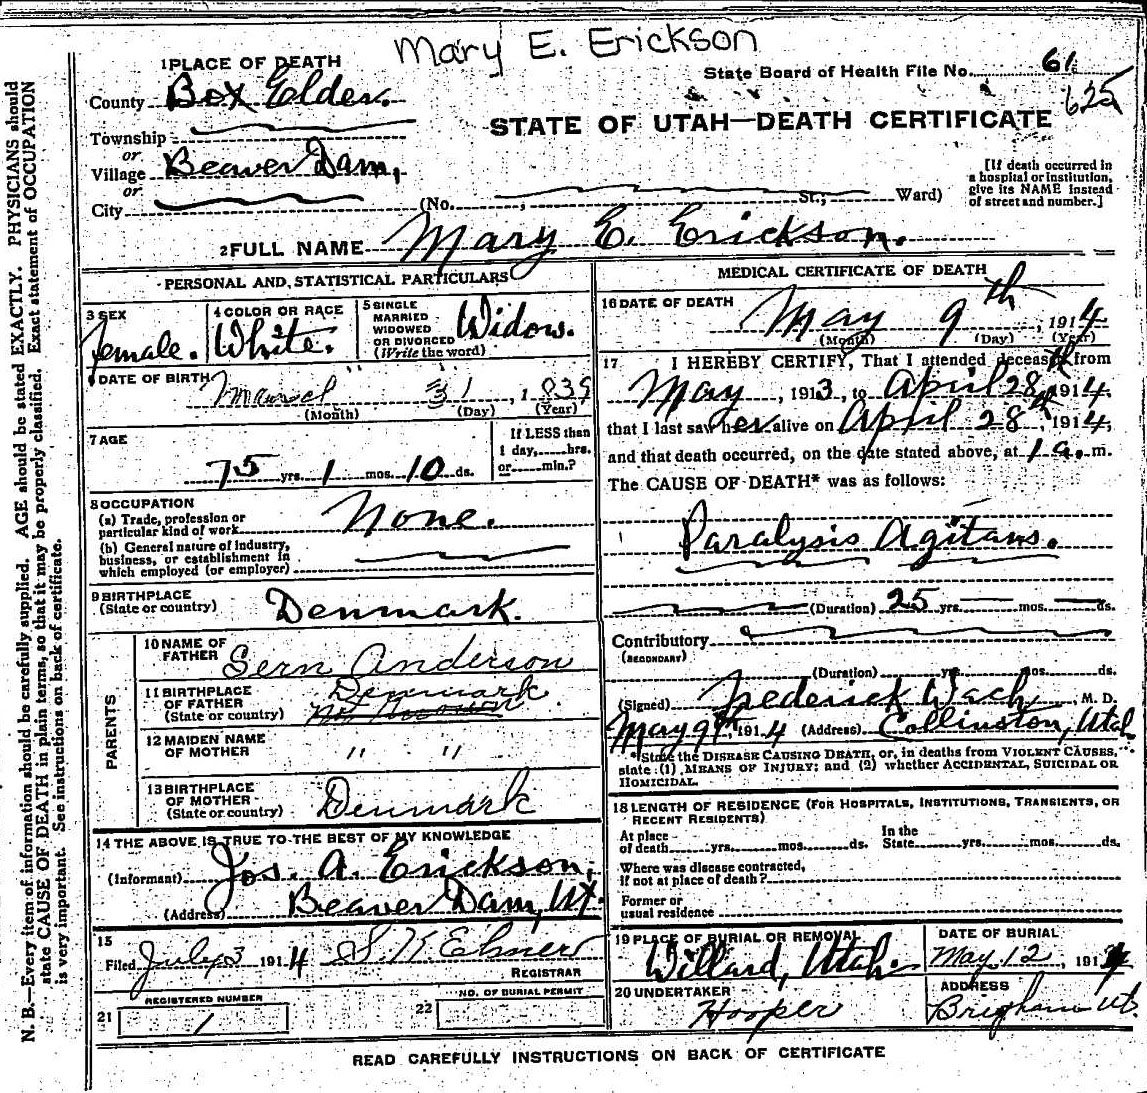 Mary E. Erickson
1 PLACE OF DEATH
State Board of Health File No. 61
625
County Box Elder.
STATE OF UTAH—DEATH CERTIFICATE
Township
or
Village Beaver Dam,
or
City (No. , St.; Ward)
[If death occurred in
a hospital or institution,
give its NAME instead
of street and number.]
2 FULL NAME Mary E. Erickson.
PERSONAL AND STATISTICAL PARTICULARS
3 SEX
female.
4 COLOR OR RACE
White.
5 SINGLE
MARRIED
WIDOWED
OR DIVORCED
(Write the word)
Widow.
6 DATE OF BIRTH
31, 1839
(Month) (Day) (Year)
7 AGE
75 yrs. 1 mos. 10 ds.
If LESS than
1 day, hrs.
or min.?
8 OCCUPATION
(a) Trade, profession or
particular kind of work None.
(b) General nature of industry,
business, or establishment in
which employed (or employer)
9 BIRTHPLACE
(State or country) Denmark.
PARENTS
10 NAME OF
FATHER Sern Anderson
11 BIRTHPLACE
OF FATHER
(State or country) Denmark
12 MAIDEN NAME
OF MOTHER " "
13 BIRTHPLACE
OF MOTHER
(State or country) Denmark
14 THE ABOVE IS TRUE TO THE BEST OF MY KNOWLEDGE
(Informant) Jos. A. Erickson,
(Address) Beaver Dam, Ut.
15
Filed July 3 1914
REGISTRAR
REGISTERED NUMBER
21 1
NO. OF BURIAL PERMIT
22
MEDICAL CERTIFICATE OF DEATH
16 DATE OF DEATH
May 9th, 1914
(Month) (Day) (Year)
17 I HEREBY CERTIFY, That I attended deceased from
May, 1913, to April 28th 1914,
that I last saw her alive on April 28th, 1914,
and that death occurred, on the date stated above, at 1 a. m.
The CAUSE OF DEATH* was as follows:
Paralysis Agitans.
(Duration) 25 yrs. mos. ds.
Contributory
(SECONDARY)
(Duration) yrs. mos. ds.
(Signed) Frederick Wach, M. D.
May 9th, 1914 (Address) Collinston, Utah
*State the DISEASE CAUSING DEATH, or, in deaths from VIOLENT CAUSES,
state (1) MEANS OF INJURY; and (2) whether ACCIDENTAL, SUICIDAL OR
HOMICIDAL.
18 LENGTH OF RESIDENCE (FOR HOSPITALS, INSTITUTIONS, TRANSIENTS, OR
RECENT RESIDENTS)
At place
of death yrs. mos. ds.
In the
State yrs. mos. ds.
Where was disease contracted,
if not at place of death?
Former or
usual residence
19 PLACE OF BURIAL OR REMOVAL
Willard, Utah.
DATE OF BURIAL
May 12, 1914
20 UNDERTAKER
Hooper
ADDRESS
Brigham Ut.
READ CAREFULLY INSTRUCTIONS ON BACK OF CERTIFICATE
N. B.—Every item of information should be carefully supplied. AGE should be stated EXACTLY. PHYSICIANS should
state CAUSE OF DEATH in plain terms, so that it may be properly classified. Exact statement of OCCUPATION
is very important. See instructions on back of certificate.